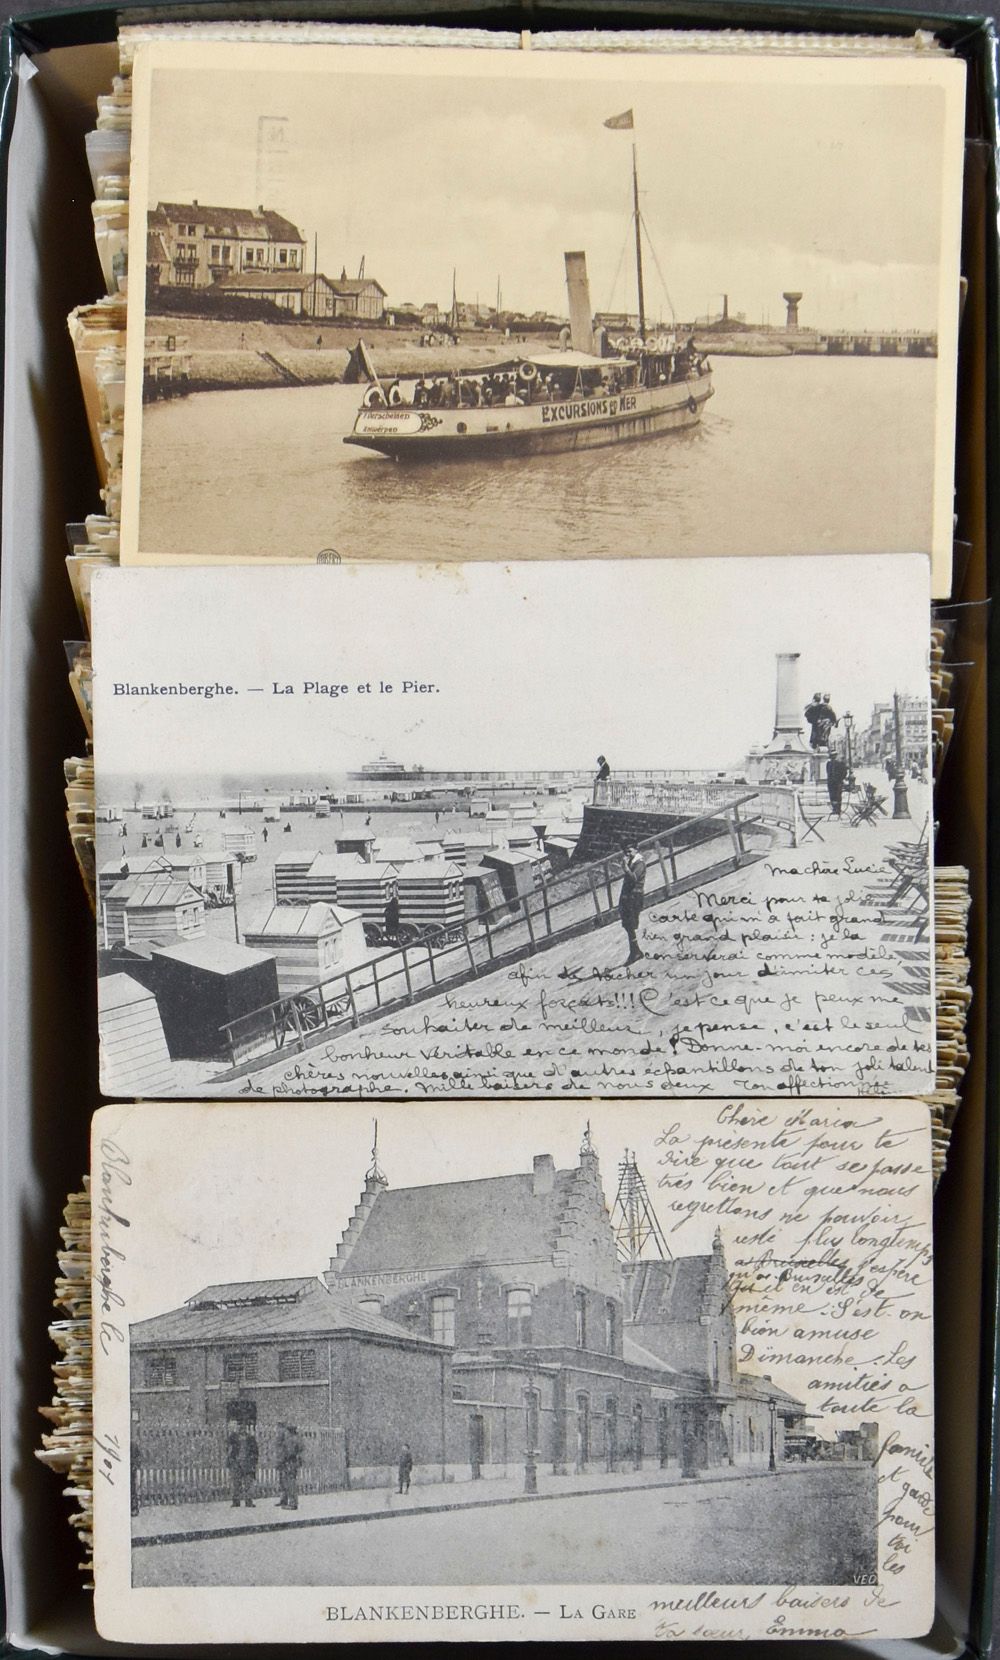 EXCURSIONS EN MER
Antwerpen
Blankenberghe. — La Plage et le Pier.
Ma chère Lucie
Merci pour ta jolie
carte qui m'a fait grand
bien grand plaisir : je la
conserverai comme modèle,
afin de tâcher un jour d'imiter ces
heureux forçats!!! C'est ce que je peux me
souhaiter de meilleur, je pense, c'est le seul
bonheur véritable en ce monde! Donne-moi encore de tes
chères nouvelles ainsi que d'autres échantillons de ton joli talent
de photographe. Mille baisers de nous deux Ton affectionnée
BLANKENBERGHE
Chère Maria
La présente pour te
dire que tout se passe
très bien et que nous
regrettons ne pouvoir
resté plus longtemps
à Bruxelles j'espère
qu'à Bruxelles
qu'il en est de
même. S'est on
bien amuse
Dimanche. Les
amitiés a
toute la
famille
et garde
pour
toi
les
meilleurs baisers de
ta sœur Emma
Blankenberghe le
VED
BLANKENBERGHE. — LA GARE